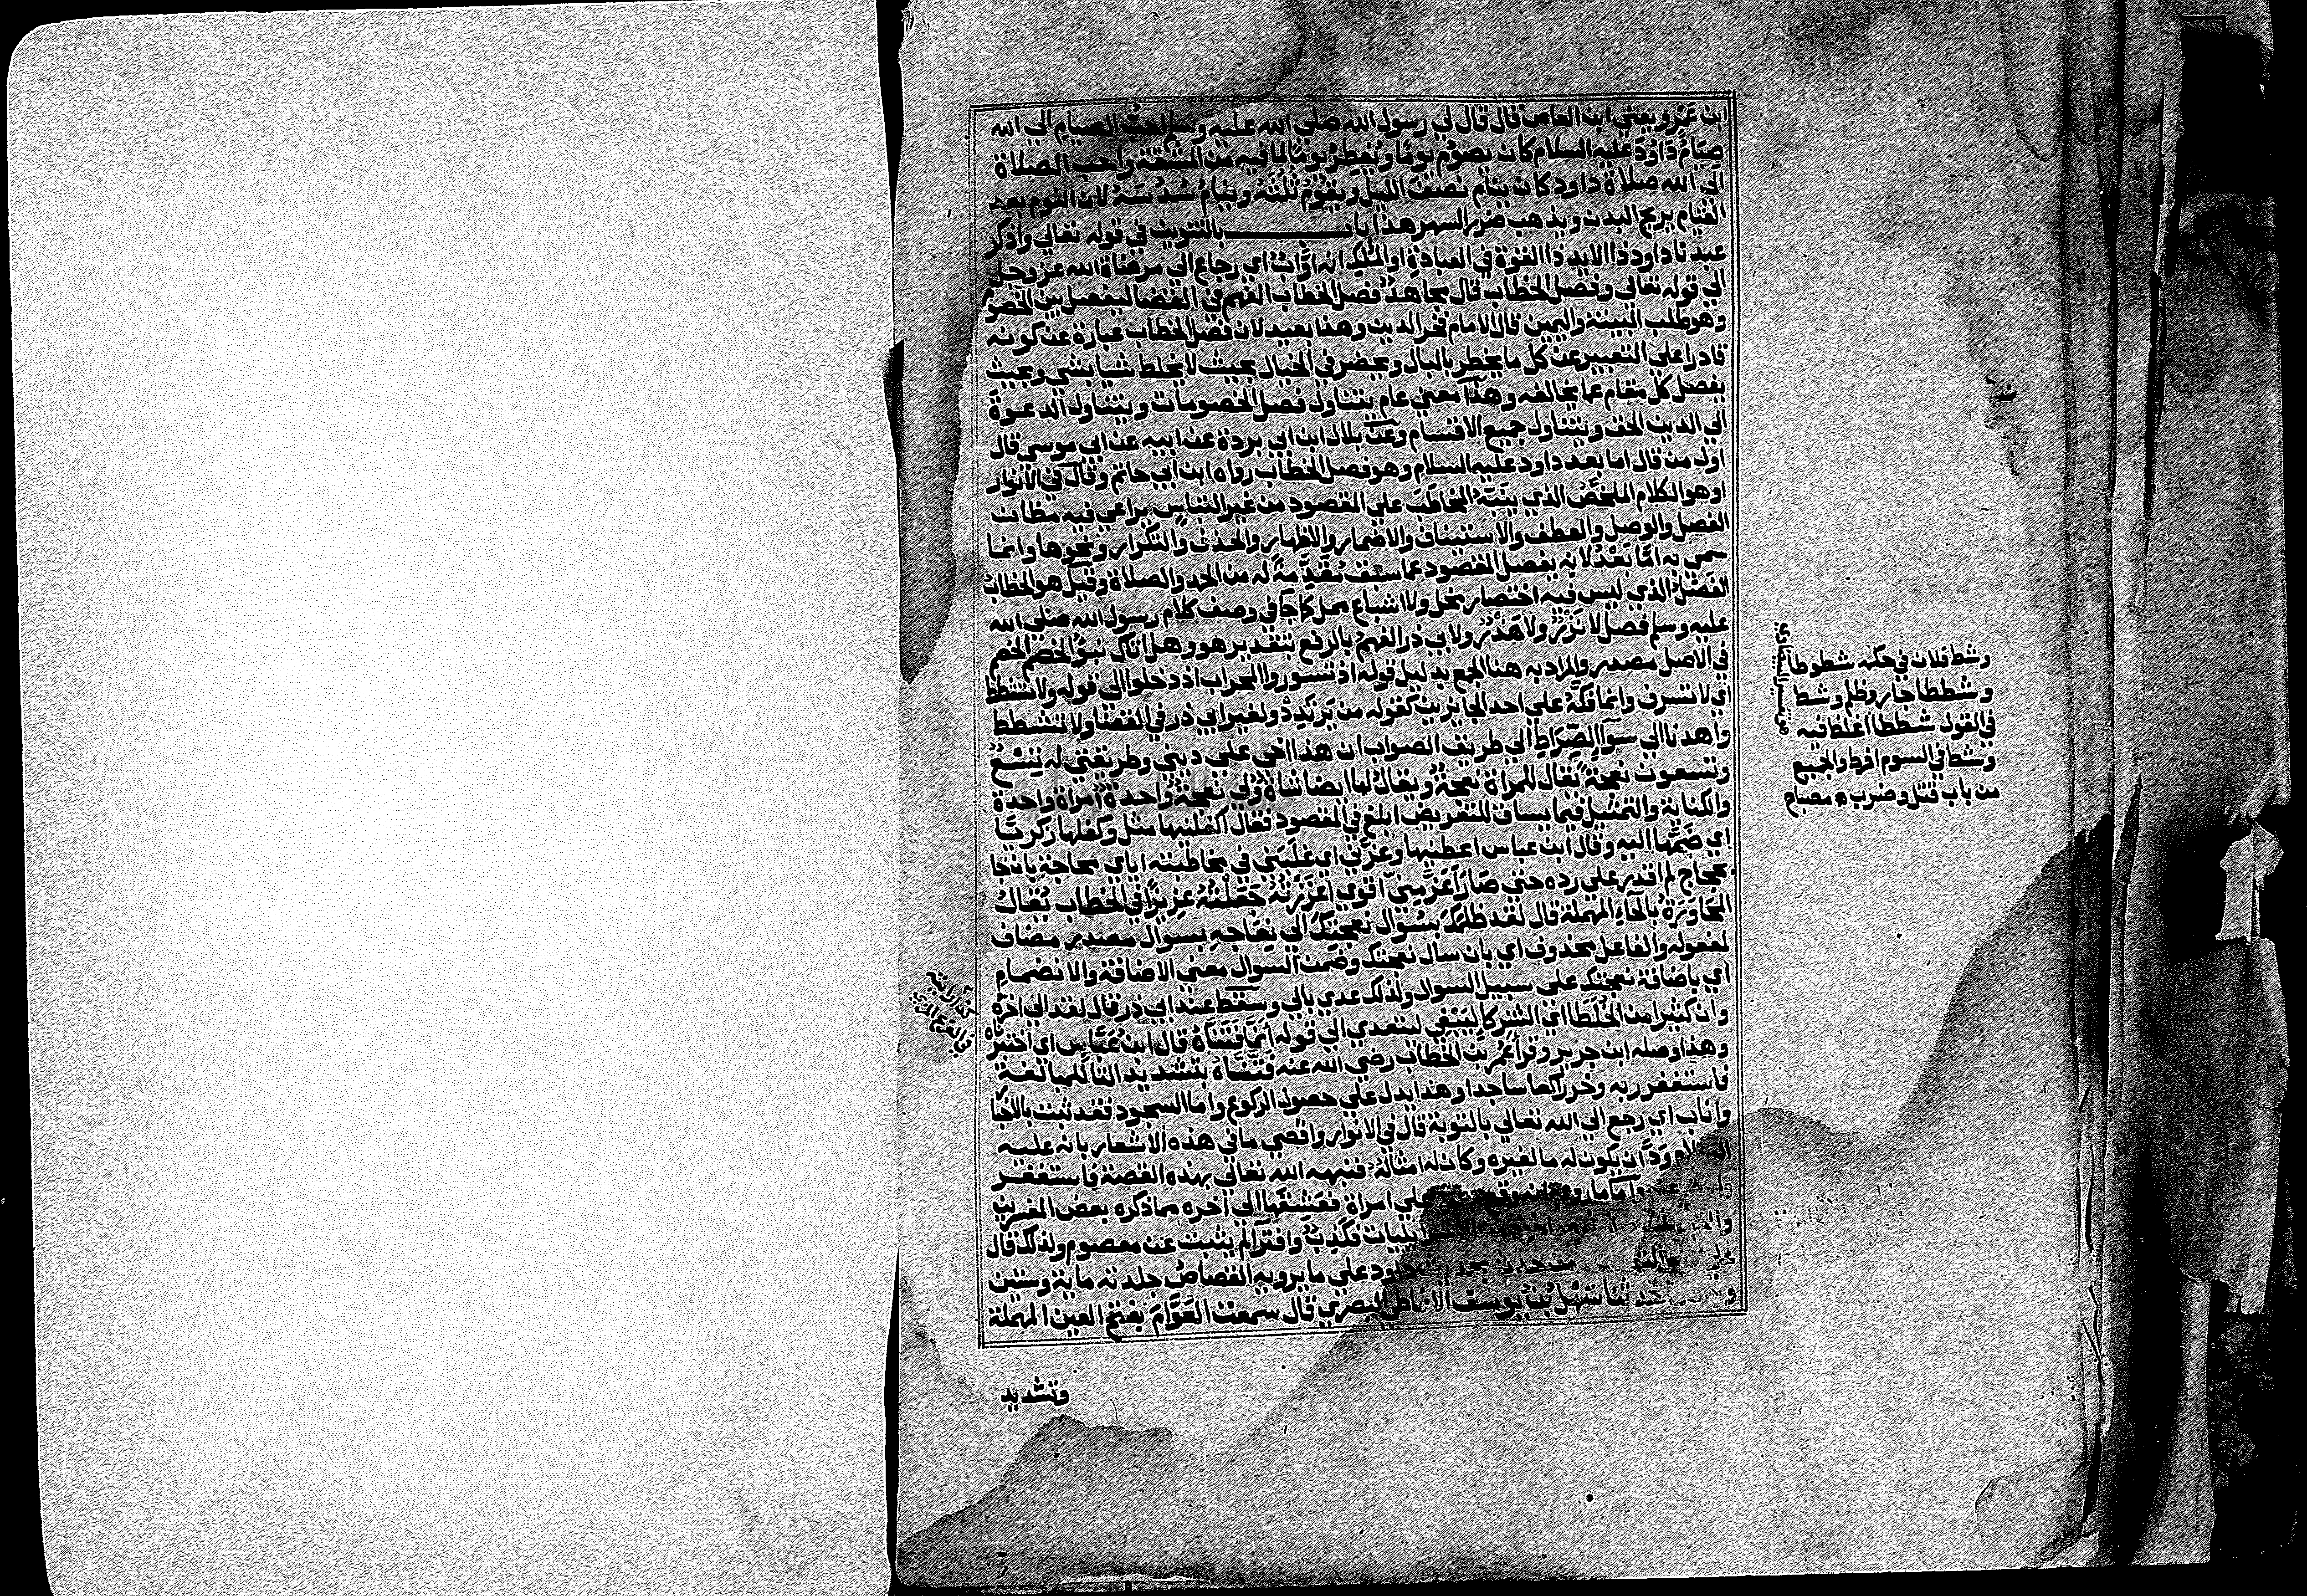 ابن عَمْرٍو يعني ابن العاص قال قال لي رسول الله صلي الله عليه وسلم احبُّ الصيام الي الله
صِيَامُ دَاوُدَ عليه السلام كان يصومُ يومًا ويُفطِرُ يومًا لما فيه من المشقة واحب الصلاة
الي الله صلاة داود كان ينام نصفَ الليل ويقُومُ ثُلُثَهُ وينامُ سُدُسَهُ لان النوم بعد
القيام يريح البدن ويذهب ضرر السهر هذا باب بالتنوين في قوله تعالي واذكر
عبدنا داود ذا الايد ذا القوة في العبادة او الملك انه اوَّابٌ اي رجاع الي مرضاة الله عز وجل
الي قوله تعالي وفصل الخطاب قال مجاهدٌ فصل الخطاب الفهم في القضا ليفصل بين الخصوم
وهو طلب البينة واليمين قال الامام فخر الدين وهذا بعيد لان فصل الخطاب عبارة عن كونه
قادرا علي التعبير عن كل ما يخطر بالبال ويحضر في الخيال بحيث لا يخلط شيا بشي وبحيث
يفصل كل مقام عما يخالفه وهذا معني عام يتناول فصل الخصومات ويتناول الدعوة
الي الدين الحق ويتناول جميع الاقسام وعن بلال ابن ابي بردة عن ابيه عن ابي موسي قال
اول من قال اما بعد داود عليه السلام وهو فصل الخطاب رواه ابن ابي حاتم وقال في الانوار
او هو الكلام الملخَّصُ الذي ينَبِّهُ المخاطَبَ علي المقصود من غير التباسٍ يراعي فيه مظان
الفصل والوصل والعطف والاستيناف والاضمار والاظهار والحذف والتكرار ونحوها وانما
سمي به امَّا بَعْدُ لانه يفصل المقصود عما سبق مُقَدِّمةً له من الحمد والصلاة وقيل هو الخطابُ
الفَصْلُ الذي ليس فيه اختصار مخل ولا اشباع ممل كما جآ في وصف كلام رسول الله صلي الله
عليه وسلم فصل لا نَزْرٌ ولا هَذْرٌ ولابي ذر الفهمُ بالرفع بتقدير هو وهل اتاك نبؤُ الخصم الخصم
في الاصل مصدر والمراد به هنا الجمع بدليل قوله اذ تسوروا المحراب اذ دخلوا الي قوله ولا تشطط
اي لا تسرف وانما فكَّهُ علي احد الجايزين كقوله من يَرْتَدِدْ ولغير ابي ذر في القضا ولا تشطط
واهدنا الي سوآ الصِّرَاطِ الي طريق الصواب ان هذا اخي علي ديني وطريقتي له تِسْعٌ
وتسعون نعجة يُقال للمراة نعجةٌ ويقالُ لها ايضا شاةٌ ولي نعجةٌ واحدةٌ امراة واحدة
والكناية والتمثيل فيما يساق للتعريض ابلغ في المقصود فقال اكفلنيها مثل وكفلها زكريَّا
اي ضَمَّها اليه وقال ابن عباس اعطنيها وعزَّني اي غلَبَني في مخاطبته اياي محاجة بان جا
بحجاج لم اقدر علي رده حتي صَارَ اَعَزَّ مِنِّي اقوي اعْزَزْتُهُ جَعَلْتُهُ عزيزًا في الخطاب يُقالُ
المحَاوَرَةُ بالحاءِ المهملة قال لقد ظلمكَ بسُوال نعجتِكَ الي نعَاجِهِ بسوال مصدر مضاف
لمفعوله والفاعل محذوف اي بان سال نعجتك وضمن السوال معني الاضافة والانضمام
اي باضافة نعجتك علي سبيل السوال ولذلك عدي بالي وسقط عند ابي ذر قال لقد الي اخره
وان كثيرا من الخُلَطا اي الشركا ليَبْغِي ليتعدي الي قوله اَنَّمَا فَتَنَّاهُ قال ابنُ عَبَّاسٍ اي اختبرناه
وهذا وصله ابن جرير وقرأ عُمَرُ بن الخطاب رضي الله عنه فَتَّنَّاهُ بتشديد التا للمبالغة
فاستغفر ربه وخر راكعا ساجدا وهذا يدل علي حصول الركوع واما السجود فقد ثبت بالاخبا
واناب اي رجع الي الله تعالي بالتوبة قال في الانوار واقصي ما في هذه الاشعار بانه عليه
السلام وَدَّ ان يكون له ما لغيره وكان له امثالُهُ فنبهه الله تعالي بهذه القصة فاستغفر
واما ما روي انه وقع علي امراة فعَشِقَها الي اخره مما ذكره بعض المفسرين
الاسرائيليات فكَذِبٌ وافترآ لم يثبت عن معصوم ولذلك قال
علي من حدث بحديث داود علي ما يرويه القصاصُ جلدته ماية وستين
حدثنا سَهْلُ بْنُ يُوسُفَ الانماطي البصري قال سمعت العَوَّامَ بفتح العين المهملة
وتشديد
وشط فلان في حكمه شطوطا
وشططا جار وظلم وشط
في القول شططا اغلظ فيه
وشط في السوم افرط والجميع
من باب قتل وضرب ه مصباح